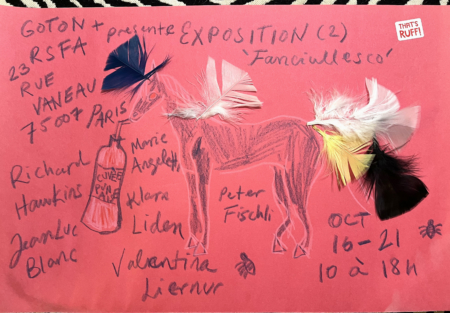 GOTON + présente EXPOSITION (2)
RSFA
'Fanciullesco'
23
RUE
VANEAU
75007 PARIS
THAT'S
RUFF!
Richard
Hawkins
JeanLuc
Blanc
Marie
Angeletti
Klara
Liden
Valentina
Liernur
Peter
Fischli
OCT
16-21
10 à 18h